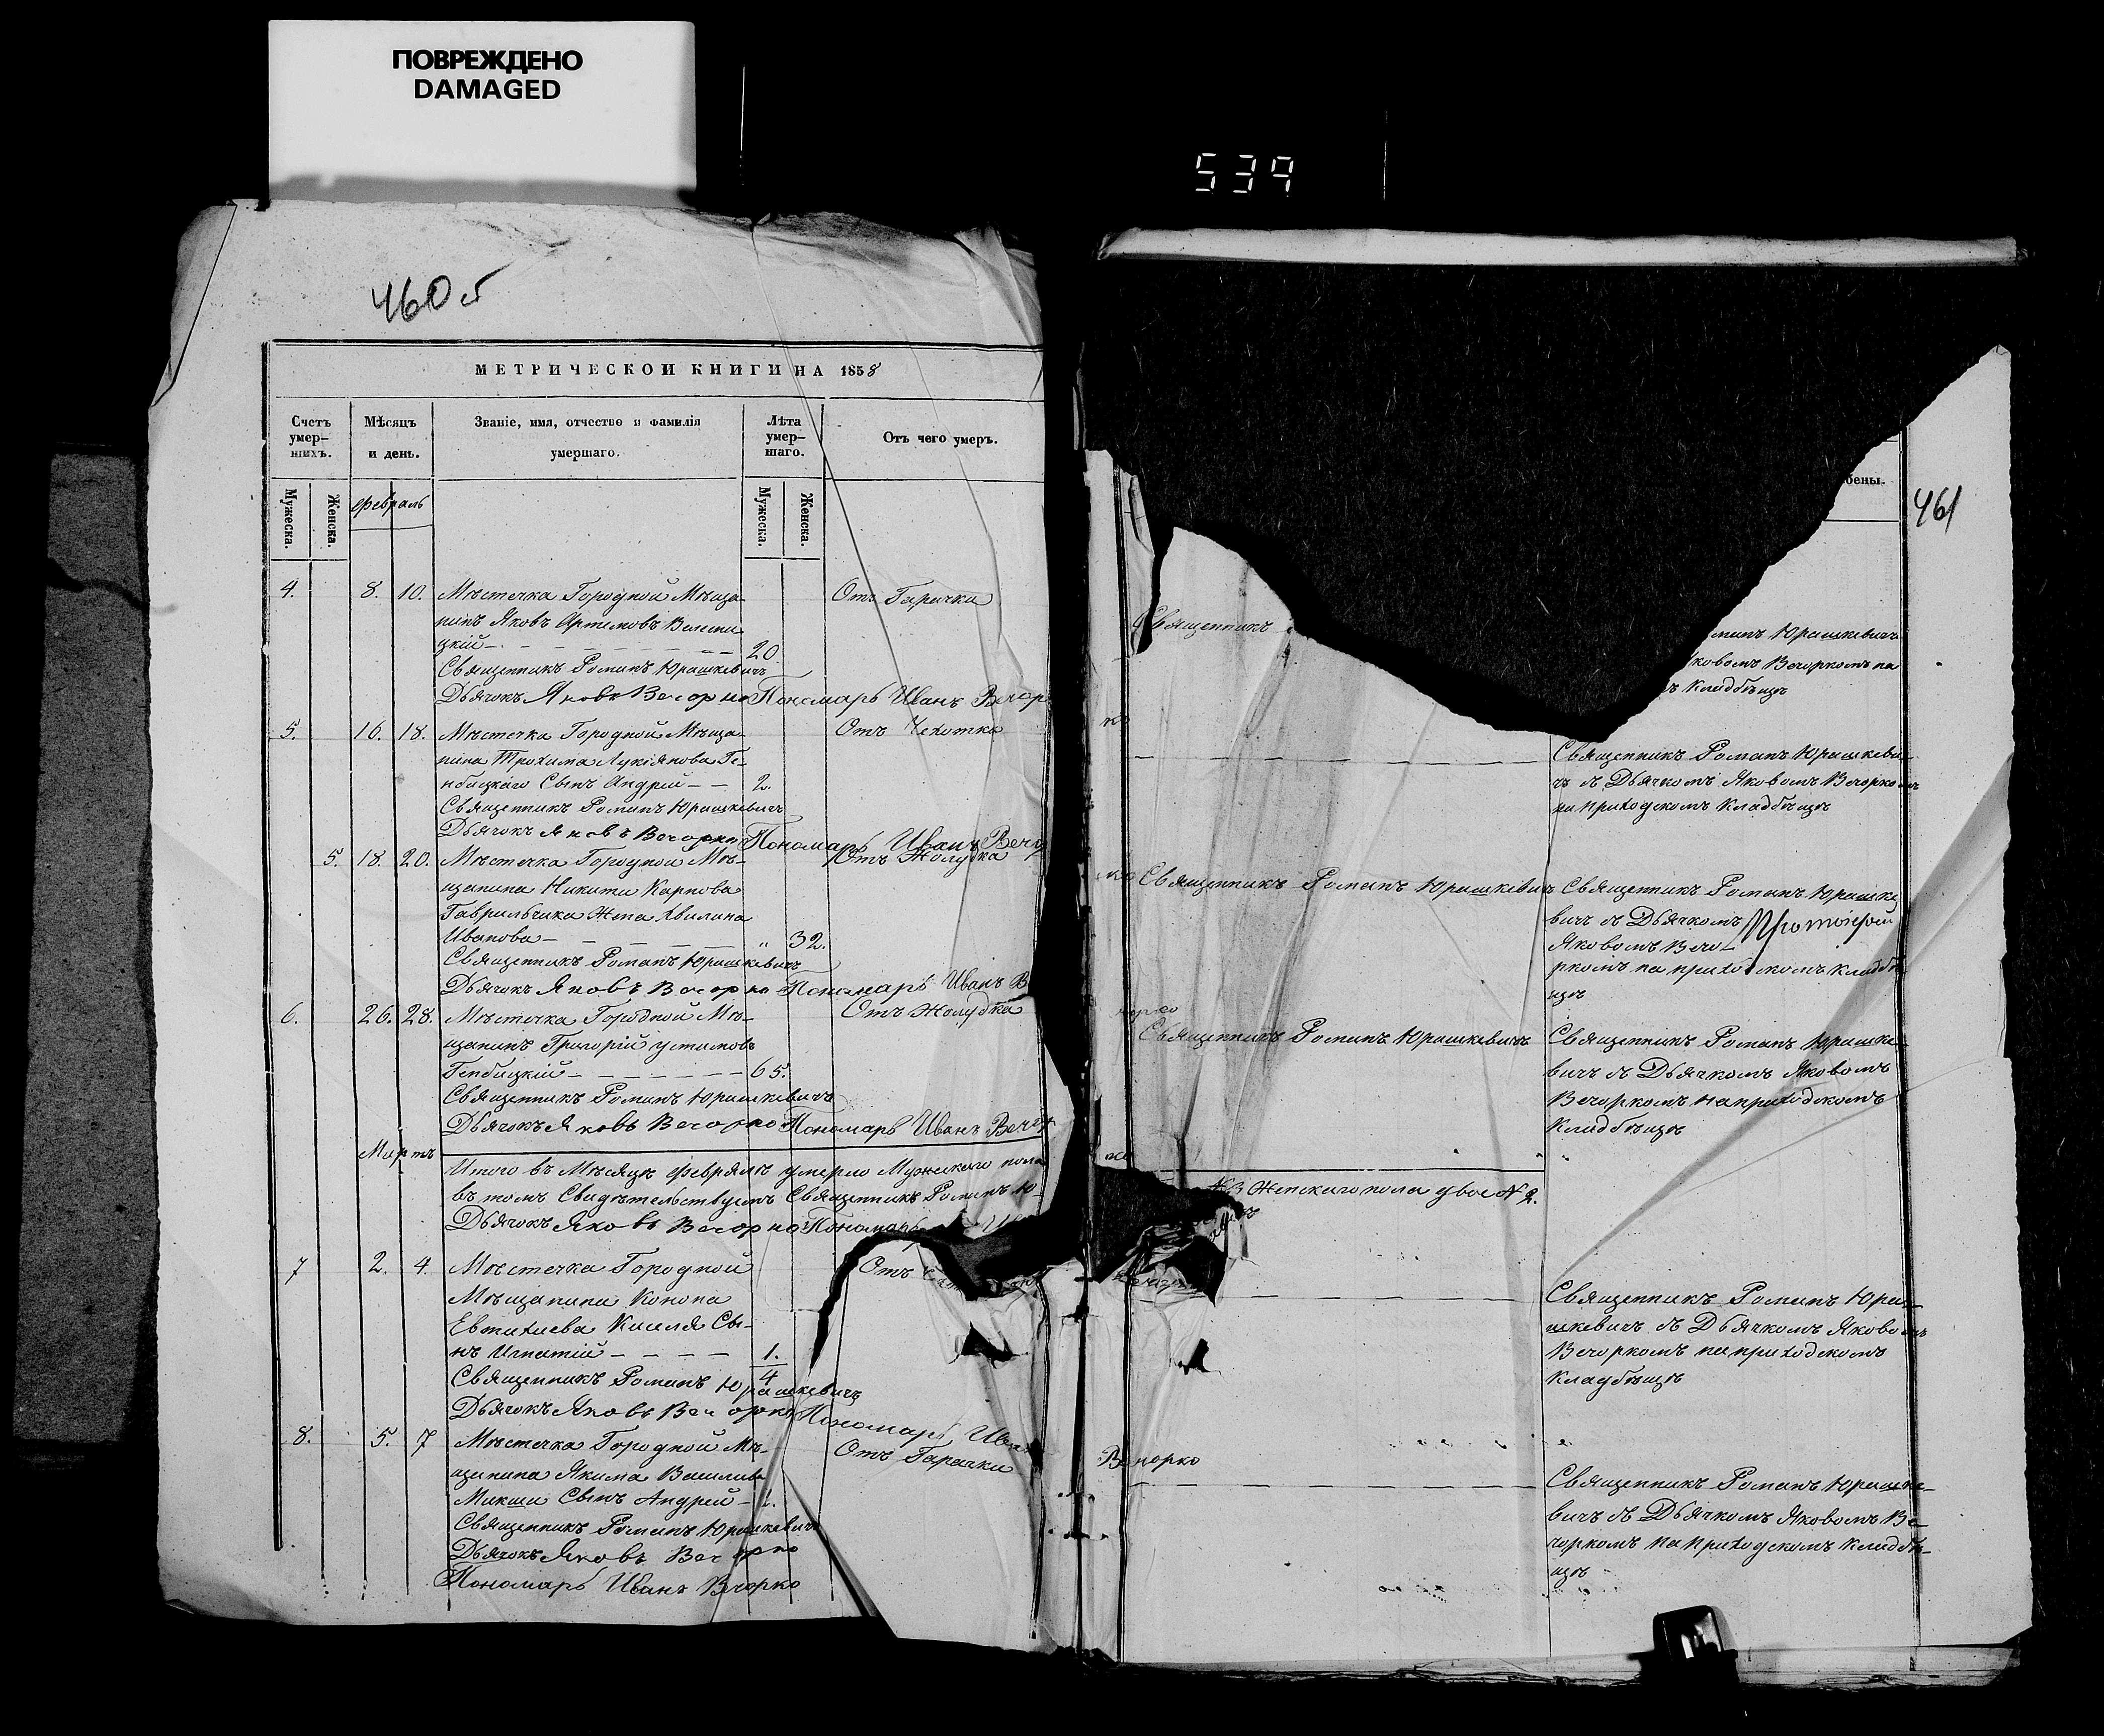 ПОВРЕЖДЕНО
DAMAGED
539
460 б
МЕТРИЧЕСКОЙ КНИГИ НА 1858
Счетъ умер-шихъ.
Мѣсяцъ и день.
Званіе, имя, отчество и фамилія умершаго.
Лѣта умер-шаго.
Отъ чего умеръ.
Мужеска.
Женска.
Февраль
Мужеска.
Женска.
4. 8. 10. Мѣстечка Городной Мѣща- Отъ Гарячки
нинъ Яковъ Артемовъ
цкій 20
Священникъ Романъ Юрашкевичъ
Дьячокъ Яковъ Вечорко Пономарь Иванъ Вечор
5. 16. 18. Мѣстечка Городной Мѣща- Отъ Чехотки
нина Трохима Лукіянова Ге-
нбицкаго Сынъ Андрей 2.
Священникъ Романъ Юрашкевичъ
Дьячокъ Яковъ Вечорко Пономарь Иванъ Вечор
5. 18. 20. Мѣстечка Городной Мѣ- Отъ Жолудка
щанина Никити Карпова
Гаврильчика Жена Квилина
Иванова „ 32.
Священникъ Романъ Юрашкевичъ
Дьячокъ Яковъ Вечорко Пономарь Иванъ В
6. 26. 28. Мѣстечка Городной Мѣ- Отъ Жолудка
щанинъ Григорій Устимовъ
Генбицкій 65.
Священникъ Романъ Юрашкевичъ
Дьячокъ Яковъ Вечорко Пономарь Иванъ Вечор
Мартъ
Итого въ Мѣсяцѣ Февралѣ умерло Мужескаго пола
въ томъ Свидѣтельствуемъ Священникъ Романъ Ю-
Дьячокъ Яковъ Вечорко Пономарь
7 2. 4. Мѣстечка Городной Отъ
Мѣщанина Конона
Евтихиева Киселя Сы-
нъ Игнатій 1.
4
Священникъ Романъ Юрашкевичъ
Дьячокъ Яковъ Вечорко Пономарь Иван
8. 5. 7 Мѣстечка Городной Мѣ- Отъ Гарачки
щанина Якима Василива
Микши Сынъ Андрей
Священникъ Романъ Юрашкевичъ
Дьячокъ Яковъ Вечорко
Пономарь Иванъ Вчорко
бены.
461
Священникъ
манъ Юрашкевичъ
Яковомъ Вечоркомъ на
Кладбѣщѣ
ко
Священникъ Романъ Юрашкеви-
чъ съ Дьячкомъ Яковомъ Вечоркомъ
на приходскомъ Кладбѣщѣ
ко Священникъ Романъ Юрашкевичъ
Священникъ Романъ Юрашке
вичъ съ Дьячкомъ
Яковомъ Вечо-
ркомъ на приходскомъ Кладбѣ
щѣ
Священникъ Романъ Юрашкевичъ
Священникъ Романъ Юрашке-
вичъ съ Дьячкомъ Яковомъ
Вечоркомъ на приходскомъ
Кладбѣщѣ
№ 3 Женскаго пола двое № 2.
Священникъ Романъ Юра-
шкевичъ съ Дьячкомъ Яковомъ
Вечоркомъ на приходскомъ
Кладбѣщѣ
Вечорко
Священникъ Романъ Юрашке-
вичъ съ Дьячкомъ Яковомъ Ве-
чоркомъ на приходскомъ Кладбѣ-
щѣ